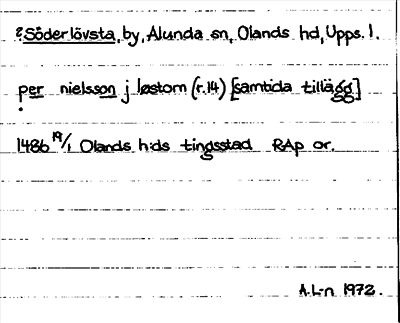 ?Söderlövsta, by, Alunda sn, Olands hd, Upps. l.
per nielsson j løstom (r.14) [samtida tillägg]
1486 19/1 Olands h:ds tingsstad RAp or.
A.L-n 1972.